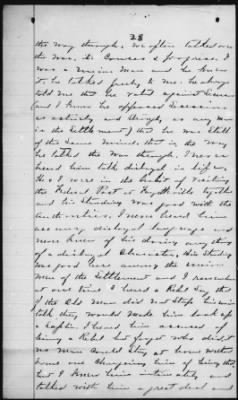 28
the way through. We often talked over
the War, its Causes & progress. I
was a Union Man and he knew
it he talked freely to me. he always
told me that he voted against Secession
(and I knew he opposed Secession
as actively and strongly as any man
in the Settlement) that he was still
of the Same mind. that is the way
he talked the War through. I never
heard him talk disloyal in his life.
He & I were in the habit of visiting
the Federal Post at Fayetteville together
and his Standing was good with the
Authorities. I never heard him
use any disloyal language and
never knew of his doing any thing
of a disloyal Character. His Standing
was good here among the Union
men of the Settlement and I remember
at one time I heard a Rebel Say that
if the Old Man did not Stop his Union
talk they would make him look up
a Sapling. I heard him accused of
being a Rebel but forget who did it
no man could Stay at home without
Some one Charging him of being that,
but I knew him intimately and
talked with him a great deal and